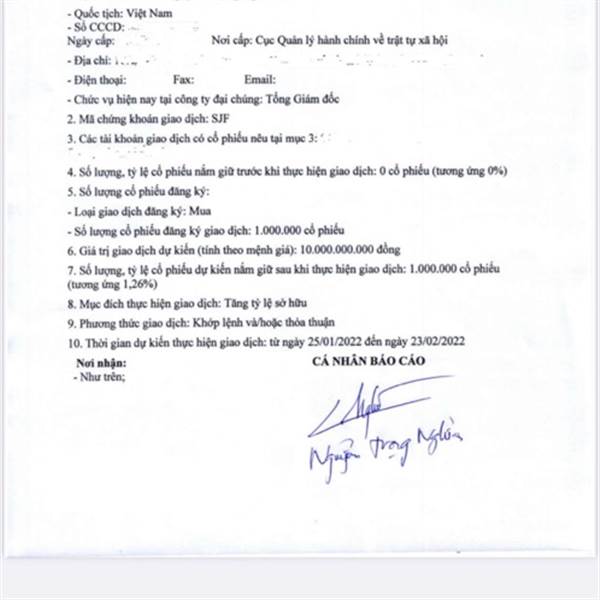 - Quốc tịch: Việt Nam
- Số CCCD:
Ngày cấp: Nơi cấp: Cục Quản lý hành chính về trật tự xã hội
- Địa chỉ:
- Điện thoại: Fax: Email:
- Chức vụ hiện nay tại công ty đại chúng: Tổng Giám đốc
2. Mã chứng khoán giao dịch: SJF
3. Các tài khoản giao dịch có cổ phiếu nêu tại mục 3:
4. Số lượng, tỷ lệ cổ phiếu nắm giữ trước khi thực hiện giao dịch: 0 cổ phiếu (tương ứng 0%)
5. Số lượng cổ phiếu đăng ký:
- Loại giao dịch đăng ký: Mua
- Số lượng cổ phiếu đăng ký giao dịch: 1.000.000 cổ phiếu
6. Giá trị giao dịch dự kiến (tính theo mệnh giá): 10.000.000.000 đồng
7. Số lượng, tỷ lệ cổ phiếu dự kiến nắm giữ sau khi thực hiện giao dịch: 1.000.000 cổ phiếu
(tương ứng 1,26%)
8. Mục đích thực hiện giao dịch: Tăng tỷ lệ sở hữu
9. Phương thức giao dịch: Khớp lệnh và/hoặc thỏa thuận
10. Thời gian dự kiến thực hiện giao dịch: từ ngày 25/01/2022 đến ngày 23/02/2022
Nơi nhận: CÁ NHÂN BÁO CÁO
- Như trên;
Nguyễn Trọng Nghĩa